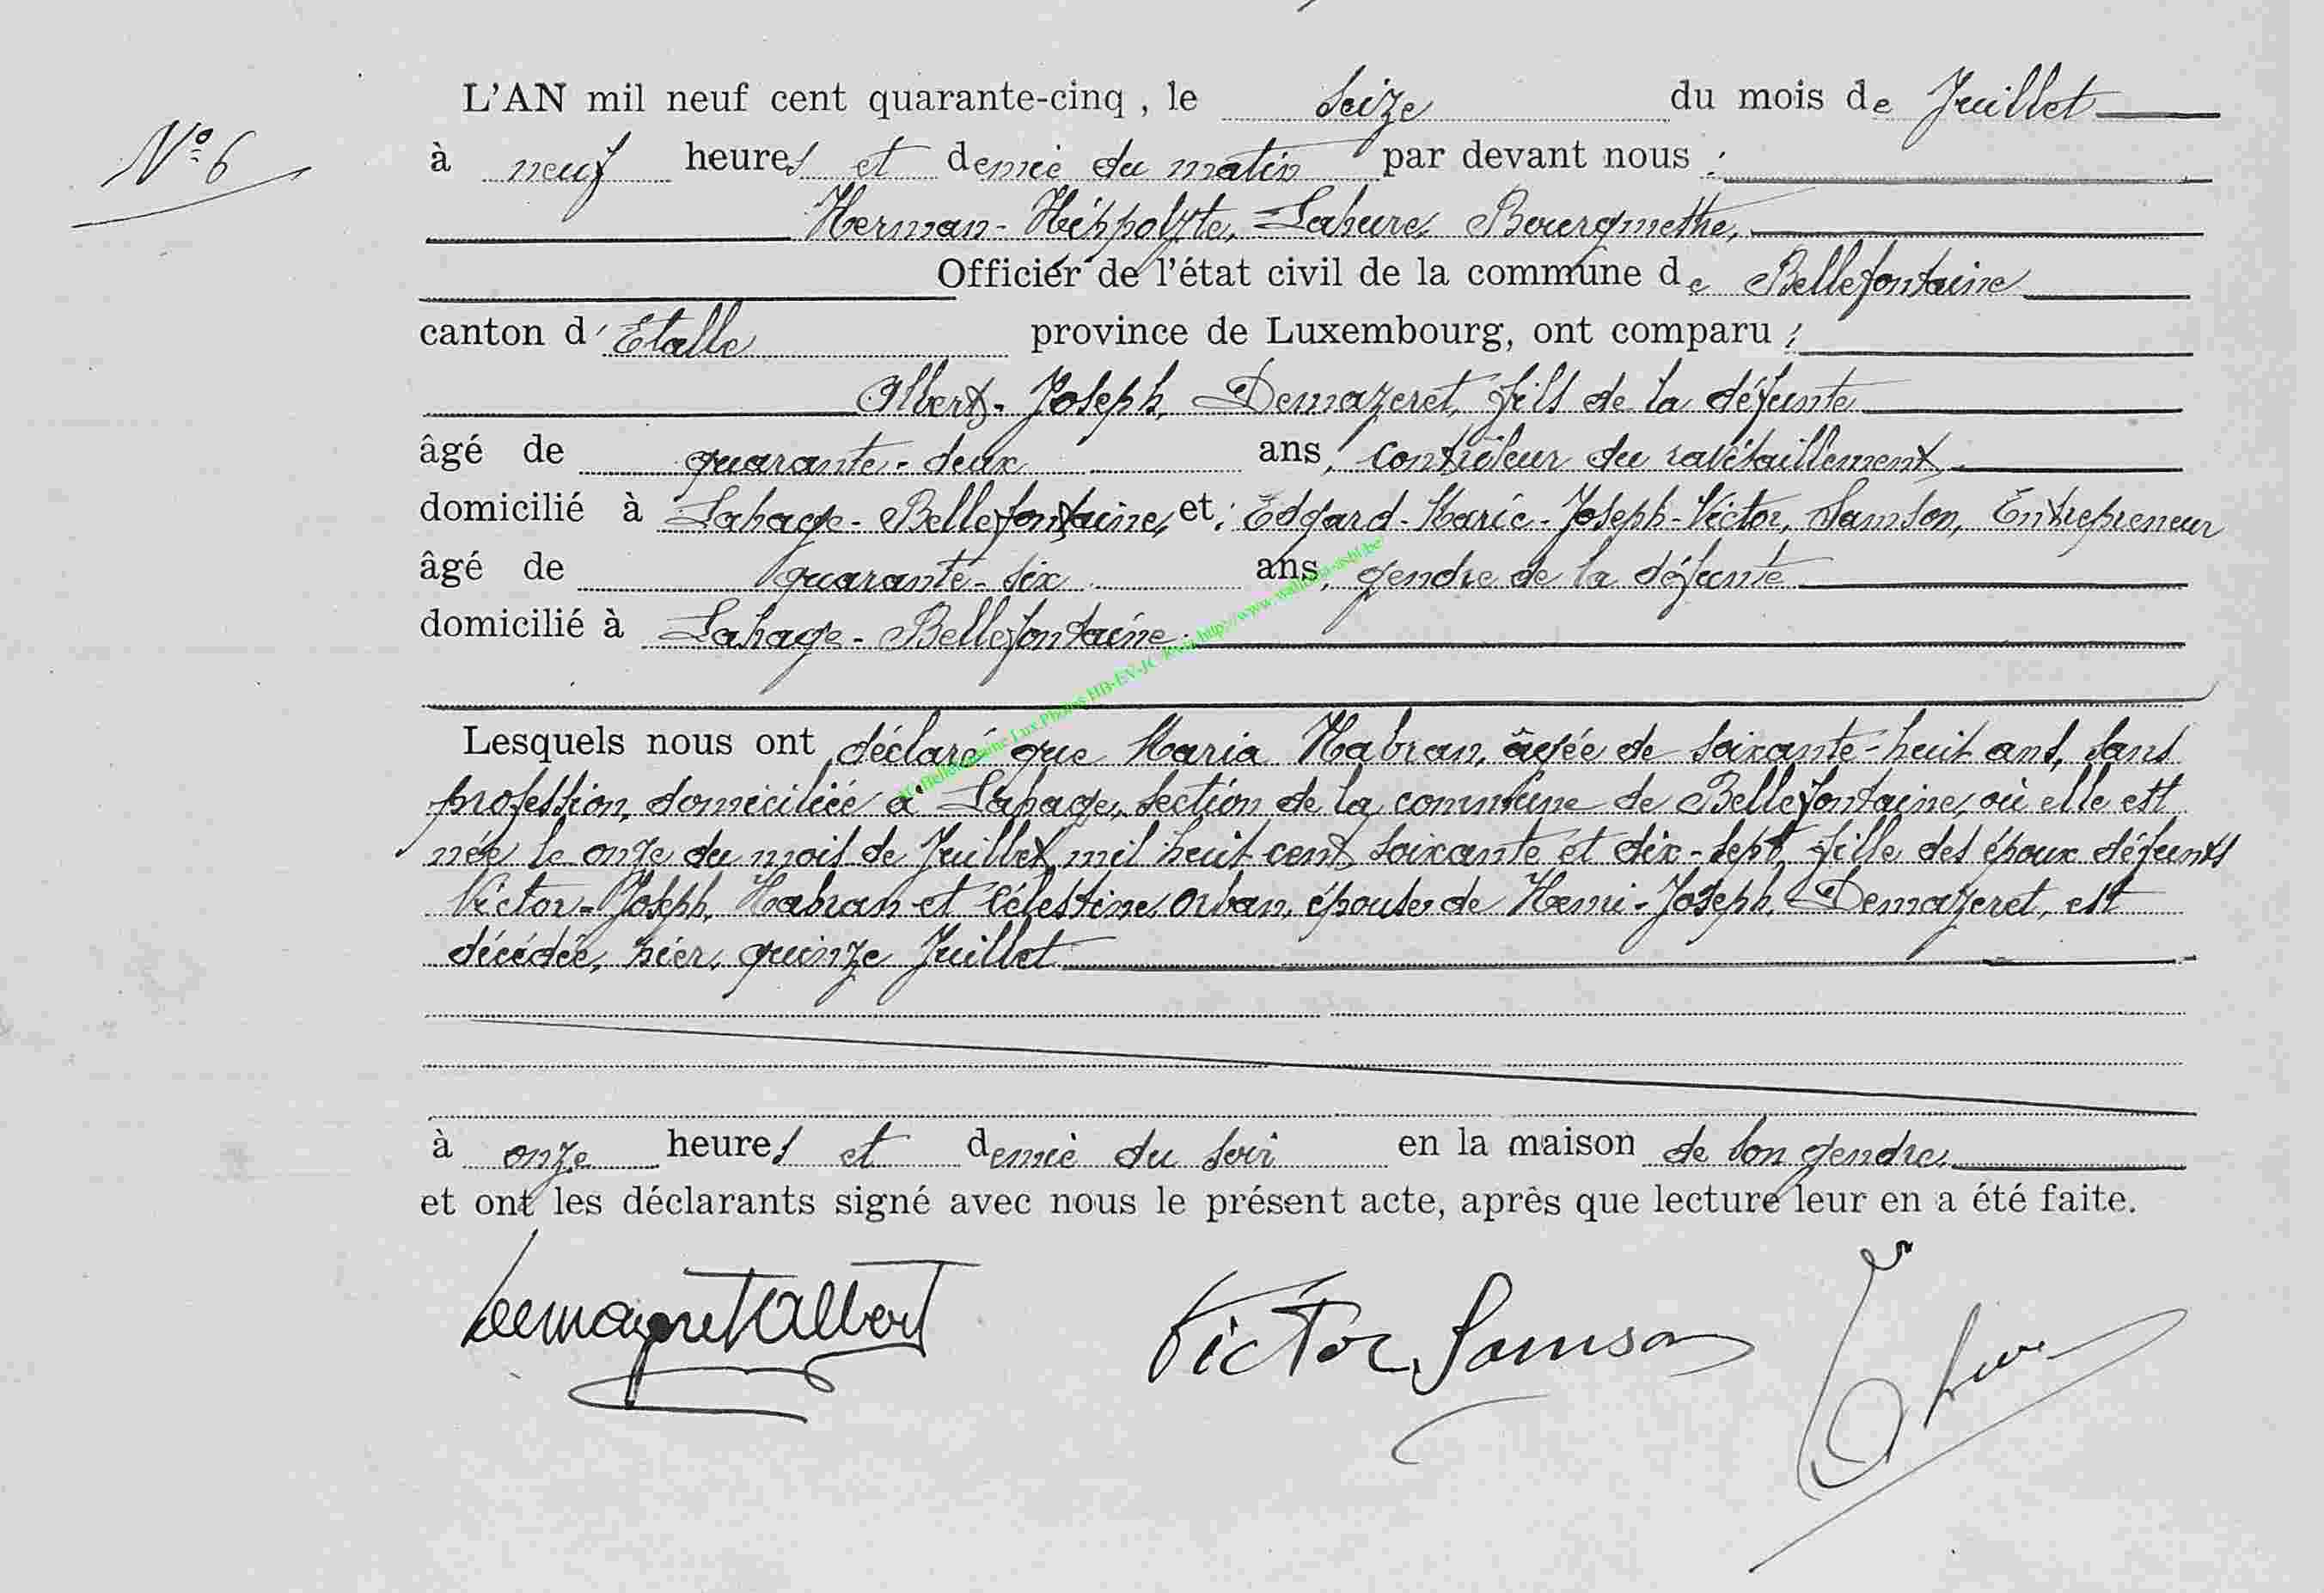 L'AN mil neuf cent quarante-cinq , le seize du mois de Juillet
N° 6
à neuf heures et demie du matin par devant nous :
Herman-Hippolyte, Lahure, Bourgmestre,
Officier de l'état civil de la commune de Bellefontaine
canton d'Etalle province de Luxembourg, ont comparu :
Albert-Joseph, Demazeret, fils de la défunte
âgé de quarante-deux ans, contrôleur du ravitaillement,
domicilié à Lahage-Bellefontaine, et: Edgard-Marie-Joseph-Victor, Samson, Entrepreneur
âgé de quarante-six ans, gendre de la défunte
domicilié à Lahage-Bellefontaine.
Lesquels nous ont déclaré que Maria Habran, âgée de soixante-huit ans, sans
profession, domiciliée à Lahage, section de la commune de Bellefontaine, où elle est
née le onze du mois de Juillet mil huit cent soixante et dix-sept, fille des époux défunts
Victor-Joseph, Habran et Célestine, Orban, épouse de Henri-Joseph, Demazeret, est
décédée, hier, quinze Juillet
à onze heures et demie du soir en la maison de son gendre.
et ont les déclarants signé avec nous le présent acte, après que lecture leur en a été faite.
Demazeret Albert Victor Samson